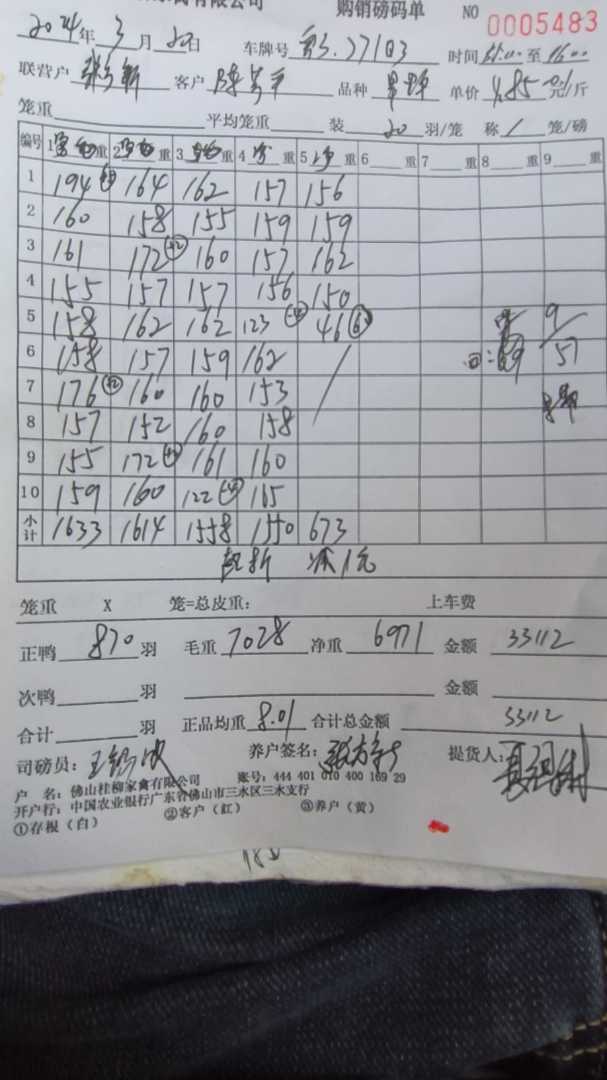 有限公司 购销磅码单 NO 0005483
2024年3月20日 车牌号 27103 时间 至 1600
联营户 客户 品种 单价 4.85 元/斤
笼重 平均笼重 装 20 羽/笼 称 1 笼/磅
编号 1 重 2 重 3 重 4 重 5 重 6 重 7 重 8 重 9 重
1 194 164 162 157 156
2 160 158 155 159 159
3 161 172 160 157 162
4 155 157 157 156 150
5 158 162 162 123 46 9
6 158 157 159 162 57
7 176 160 160 153
8 157 152 160 158
9 155 172 161 160
10 159 160 122 165
小计 1633 1614 1558 1550 673
减1元
笼重 X 笼=总皮重: 上车费
正鸭 870 羽 毛重 7028 净重 6971 金额 33112
次鸭 羽 金额
合计 羽 正品均重 8.01 合计总金额 33112
司磅员: 养户签名: 提货人:
户 名: 佛山桂柳家禽有限公司 账号: 444 401 010 400 169 29
开户行: 中国农业银行广东省佛山市三水区三水支行
①存根(白) ②客户(红) ③养户(黄)